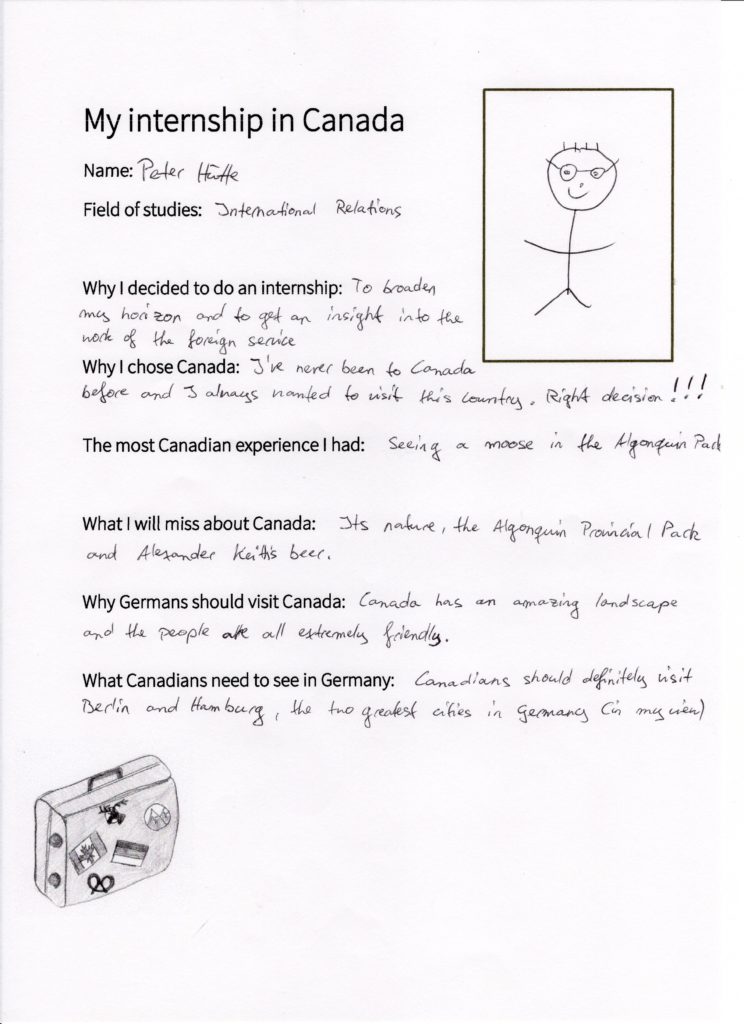 My internship in Canada
Name: Peter Hütte
Field of studies: International Relations
Why I decided to do an internship: To broaden
my horizon and to get an insight into the
work of the foreign service
Why I chose Canada: I've never been to Canada
before and I always wanted to visit this country. Right decision!!!
The most Canadian experience I had: Seeing a moose in the Algonquin Park
What I will miss about Canada: Its nature, the Algonquin Provincial Park
and Alexander Keith's beer.
Why Germans should visit Canada: Canada has an amazing landscape
and the people are all extremely friendly.
What Canadians need to see in Germany: Canadians should definitely visit
Berlin and Hamburg, the two greatest cities in Germany (in my view)